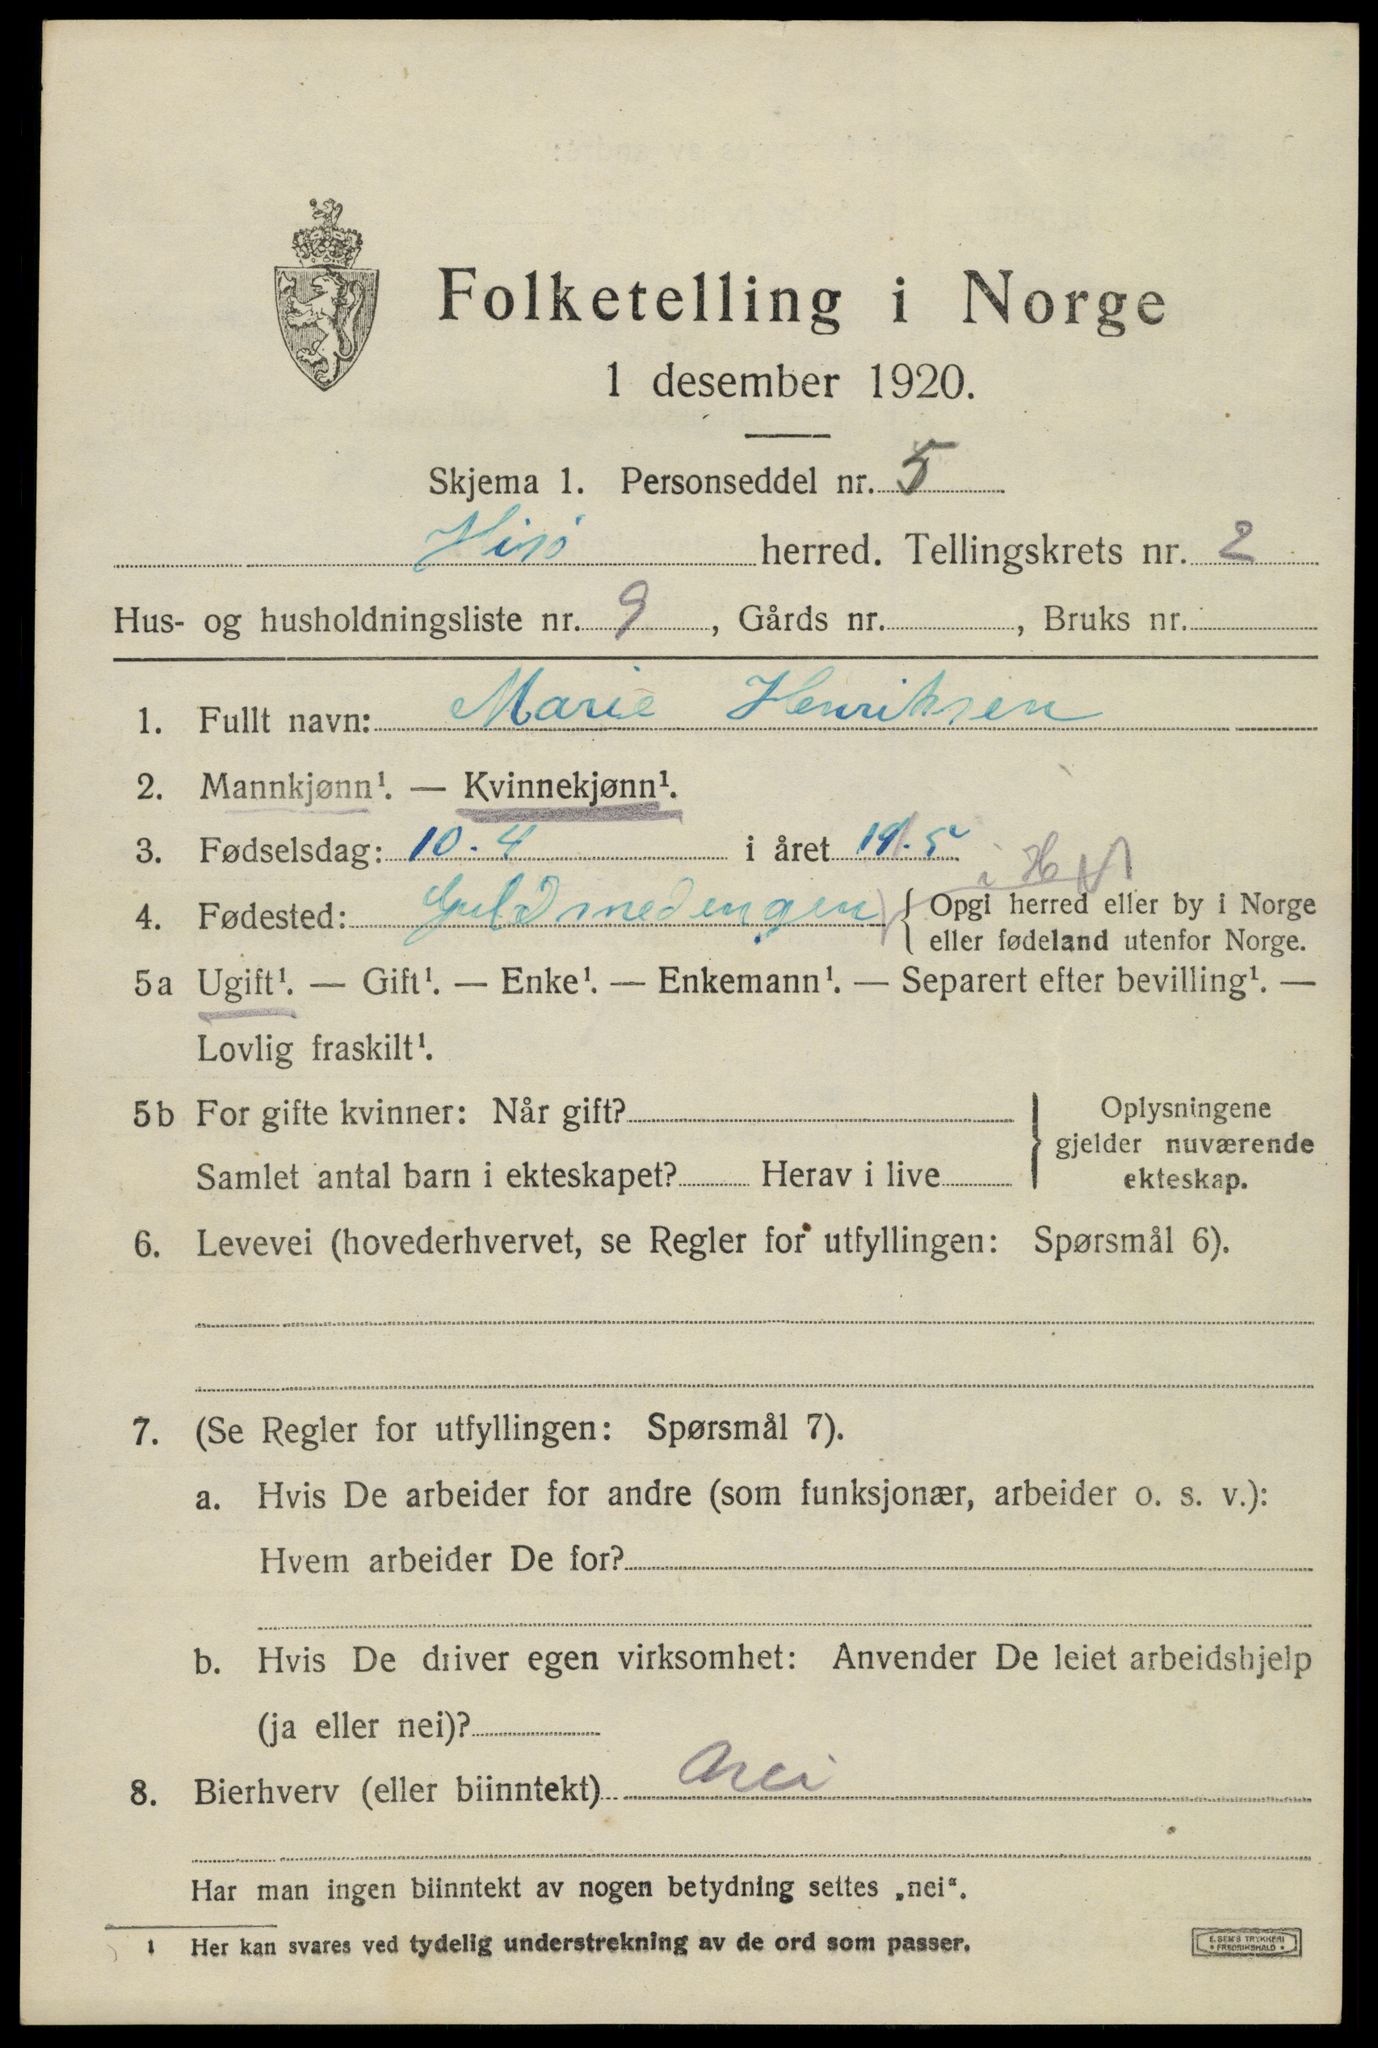 Folketelling i Norge
1 desember 1920.
Skjema 1. Personseddel nr. 5
Hisø herred. Tellingskrets nr. 2
Hus- og husholdningsliste nr. 9, Gårds nr. , Bruks nr.
1. Fullt navn: Marie Henriksen
2. Mannkjønn¹. — Kvinnekjønn¹.
3. Fødselsdag: 10.4 i året 1915
i H
4. Fødested: Guldsmedengen { Opgi herred eller by i Norge
eller fødeland utenfor Norge.
5a Ugift¹. — Gift¹. — Enke¹. — Enkemann¹. — Separert efter bevilling¹. —
Lovlig fraskilt¹.
5b For gifte kvinner: Når gift?
Samlet antal barn i ekteskapet? Herav i live
Oplysningene
gjelder nuværende
ekteskap.
6. Levevei (hovederhvervet, se Regler for utfyllingen: Spørsmål 6).
7. (Se Regler for utfyllingen: Spørsmål 7).
a. Hvis De arbeider for andre (som funksjonær, arbeider o. s. v.):
Hvem arbeider De for?
b. Hvis De driver egen virksomhet: Anvender De leiet arbeidshjelp
(ja eller nei)?
8. Bierhverv (eller biinntekt) Nei
Har man ingen biinntekt av nogen betydning settes „nei“.
1 Her kan svares ved tydelig understrekning av de ord som passer.
E. SEM'S TRYKKERI
* FREDRIKSHALD *